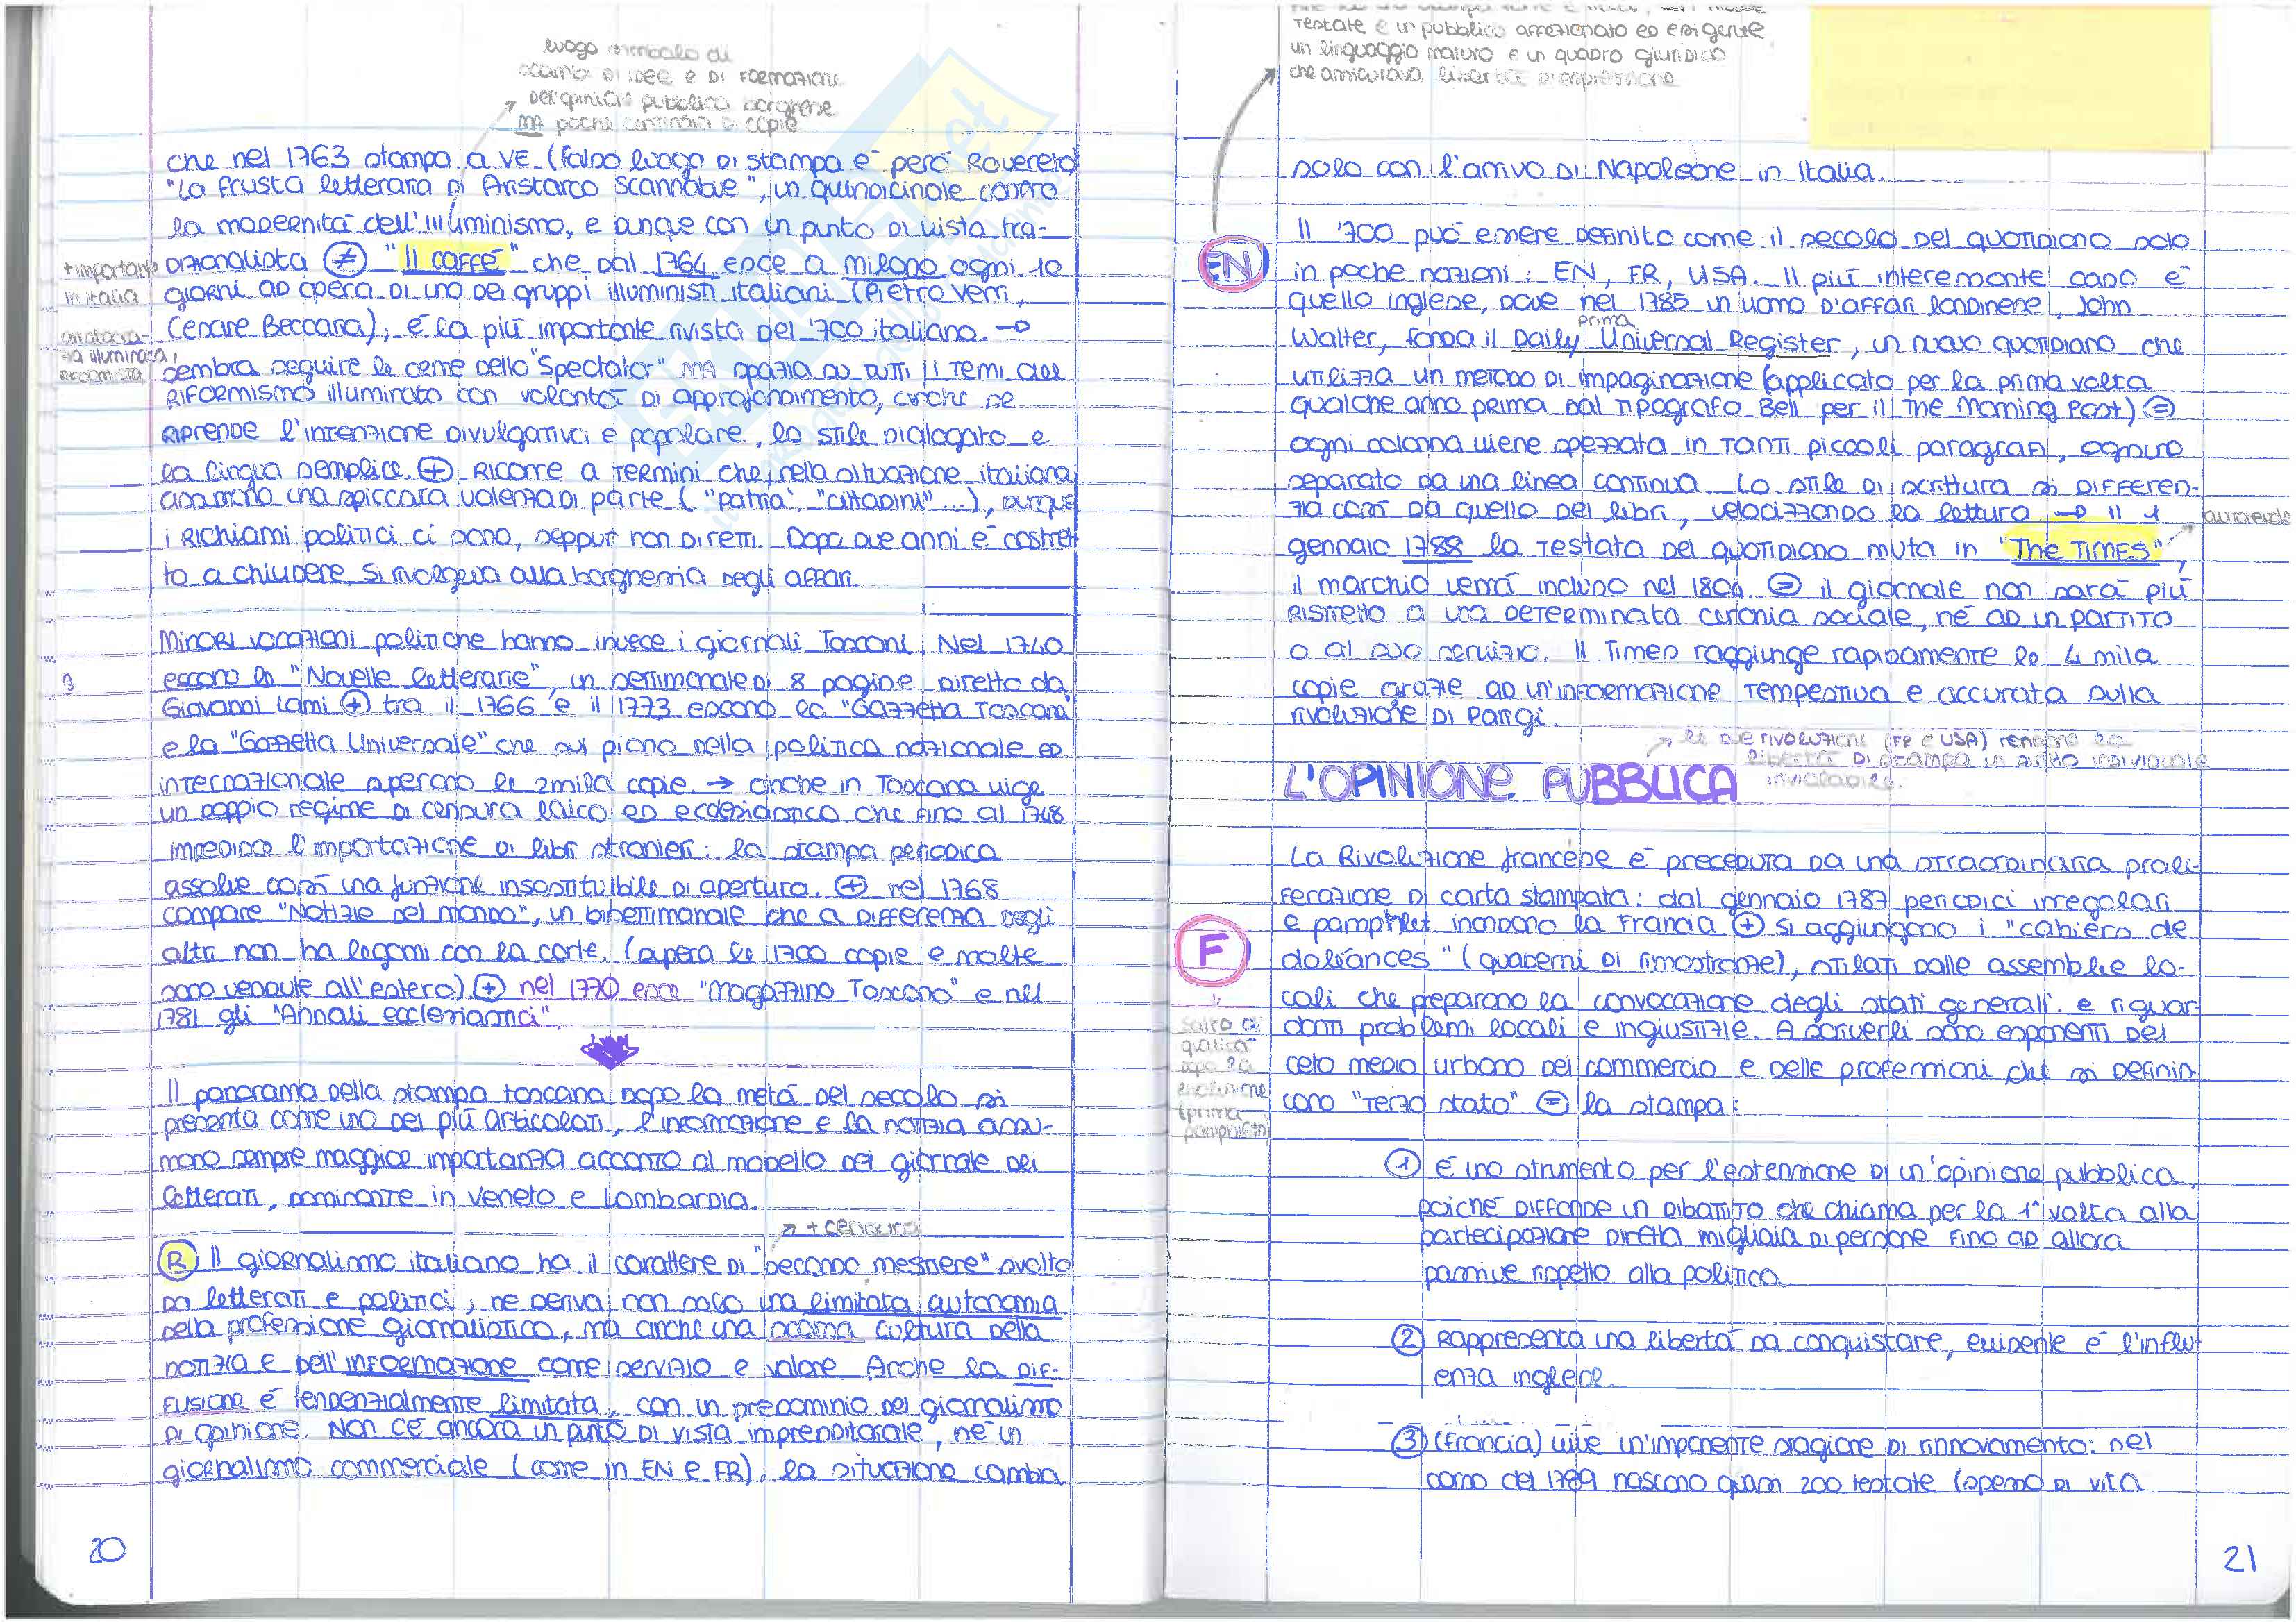 luogo simbolo di
scambi di idee e di formazione
dell'opinione pubblica borghese
MA poche centinaia di copie
che nel 1763 stampa a VE (falso luogo di stampa è però Rovereto)
"La frusta letteraria di Aristarco Scannabue", un quindicinale contro
la modernità dell'illuminismo, e dunque con un punto di vista tra-
dizionalista ≠ "Il caffè" che dal 1764 esce a Milano ogni 10
+ importante
in Italia
giorni ad opera di uno dei gruppi illuministi italiani (Pietro Verri,
Cesare Beccaria); è la più importante rivista del '700 italiano. →
aristocra-
zia illuminata,
REFORMISTA
sembra seguire le orme dello "Spectator" MA spazia su tutti i temi del
riformismo illuminato con volontà di approfondimento, anche se
riprende l'intenzione divulgativa e popolare, lo stile dialogato e
la lingua semplice. + Ricorre a termini che nella situazione italiana
assumono una spiccata valenza di parte ("patria", "cittadini"...), dunque
i richiami politici ci sono, seppur non diretti. Dopo due anni è costret
to a chiudere, si rivolgeva alla borghesia degli affari.
Minori vocazioni politiche hanno invece i giornali Toscani. Nel 1740
escono le "Novelle letterarie", un settimanale di 8 pagine diretto da
Giovanni Lami + tra il 1766 e il 1773 escono la "Gazzetta Toscana"
e la "Gazzetta Universale" che sul piano della politica nazionale ed
internazionale superano le 2mila copie. → anche in Toscana vige
un doppio regime di censura laico ed ecclesiastico che fino al 1748
impedisce l'importazione di libri stranieri: la stampa periodica
assolve così una funzione insostituibile di apertura. + nel 1768
compare "Notizie del mondo", un bisettimanale che a differenza degli
altri non ha legami con la corte. (supera le 1700 copie e molte
sono vendute all'estero) + nel 1770 esce "Magazzino Toscano" e nel
1781 gli "Annali ecclesiastici".
Il panorama della stampa toscana dopo la metà del secolo si
presenta come uno dei più articolati, l'informazione e la notizia assu-
mono sempre maggior importanza accanto al modello del giornale dei
letterati, dominante in Veneto e Lombardia.
+ censura
R Il giornalismo italiano ha il carattere di "secondo mestiere" svolto
da letterati e politici; ne deriva non solo una limitata autonomia
della professione giornalistica, ma anche una scarsa cultura della
notizia e dell'informazione come servizio e valore. Anche la DIF-
FUSIONE è tendenzialmente limitata, con un predominio del giornalismo
di opinione. Non c'è ancora un punto di vista imprenditoriale, né un
giornalismo commerciale (come in EN e FR), la situazione cambia
20
testate e un pubblico affezionato ed esigente,
un linguaggio maturo e un quadro giuridico
che assicurava libertà d'espressione
solo con l'arrivo di Napoleone in Italia.
EN
Il '700 può essere definito come il secolo del quotidiano solo
in poche nazioni: EN, FR, USA. Il più interessante caso è
quello inglese, dove nel 1785 un uomo d'affari londinese, John
prima
Walter, fonda il Daily Universal Register, un nuovo quotidiano che
utilizza un metodo di impaginazione (applicato per la prima volta
qualche anno prima dal tipografo Bell per il The Morning Post) =
ogni colonna viene spezzata in tanti piccoli paragrafi, ognuno
separato da una linea continua. Lo stile di scrittura si differen-
zia così da quello dei libri, velocizzando la lettura → il 1
gennaio 1788 la testata del quotidiano muta in "The TIMES",
il marchio verrà incluso nel 1804. = il giornale non sarà più
ristretto a una determinata cerchia sociale, né ad un partito
o al suo servizio. Il Times raggiunge rapidamente le 4 mila
copie grazie ad un'informazione tempestiva e accurata sulla
rivoluzione di Parigi.
le due rivoluzioni (FR e USA) rendono la
libertà di stampa un diritto individuale
inviolabile.
L'OPINIONE PUBBLICA
La Rivoluzione francese è preceduta da una straordinaria proli-
ferazione di carta stampata: dal gennaio 1787 periodici irregolari
e pamphlet inondano la Francia + si aggiungono i "cahiers de
F
doléances" (quaderni di rimostranze), stilati dalle assemblee lo-
cali che preparano la convocazione degli stati generali e riguar-
danti problemi locali e ingiustizie. A scriverli sono esponenti del
ceto medio urbano del commercio e delle professioni che si definis
cono "Terzo stato" = la stampa:
salto di
qualità
dopo la
rivoluzione
(prima
pamphlet)
1 è uno strumento per l'estensione di un'opinione pubblica,
poiché diffonde un dibattito che chiama per la 1ª volta alla
partecipazione diretta migliaia di persone fino ad allora
passive rispetto alla politica.
2 Rappresenta una libertà da conquistare, evidente è l'influ
enza inglese.
3 (Francia) vive un'imponente stagione di rinnovamento: nel
corso del 1789 nascono quasi 200 testate (spesso di vita
21